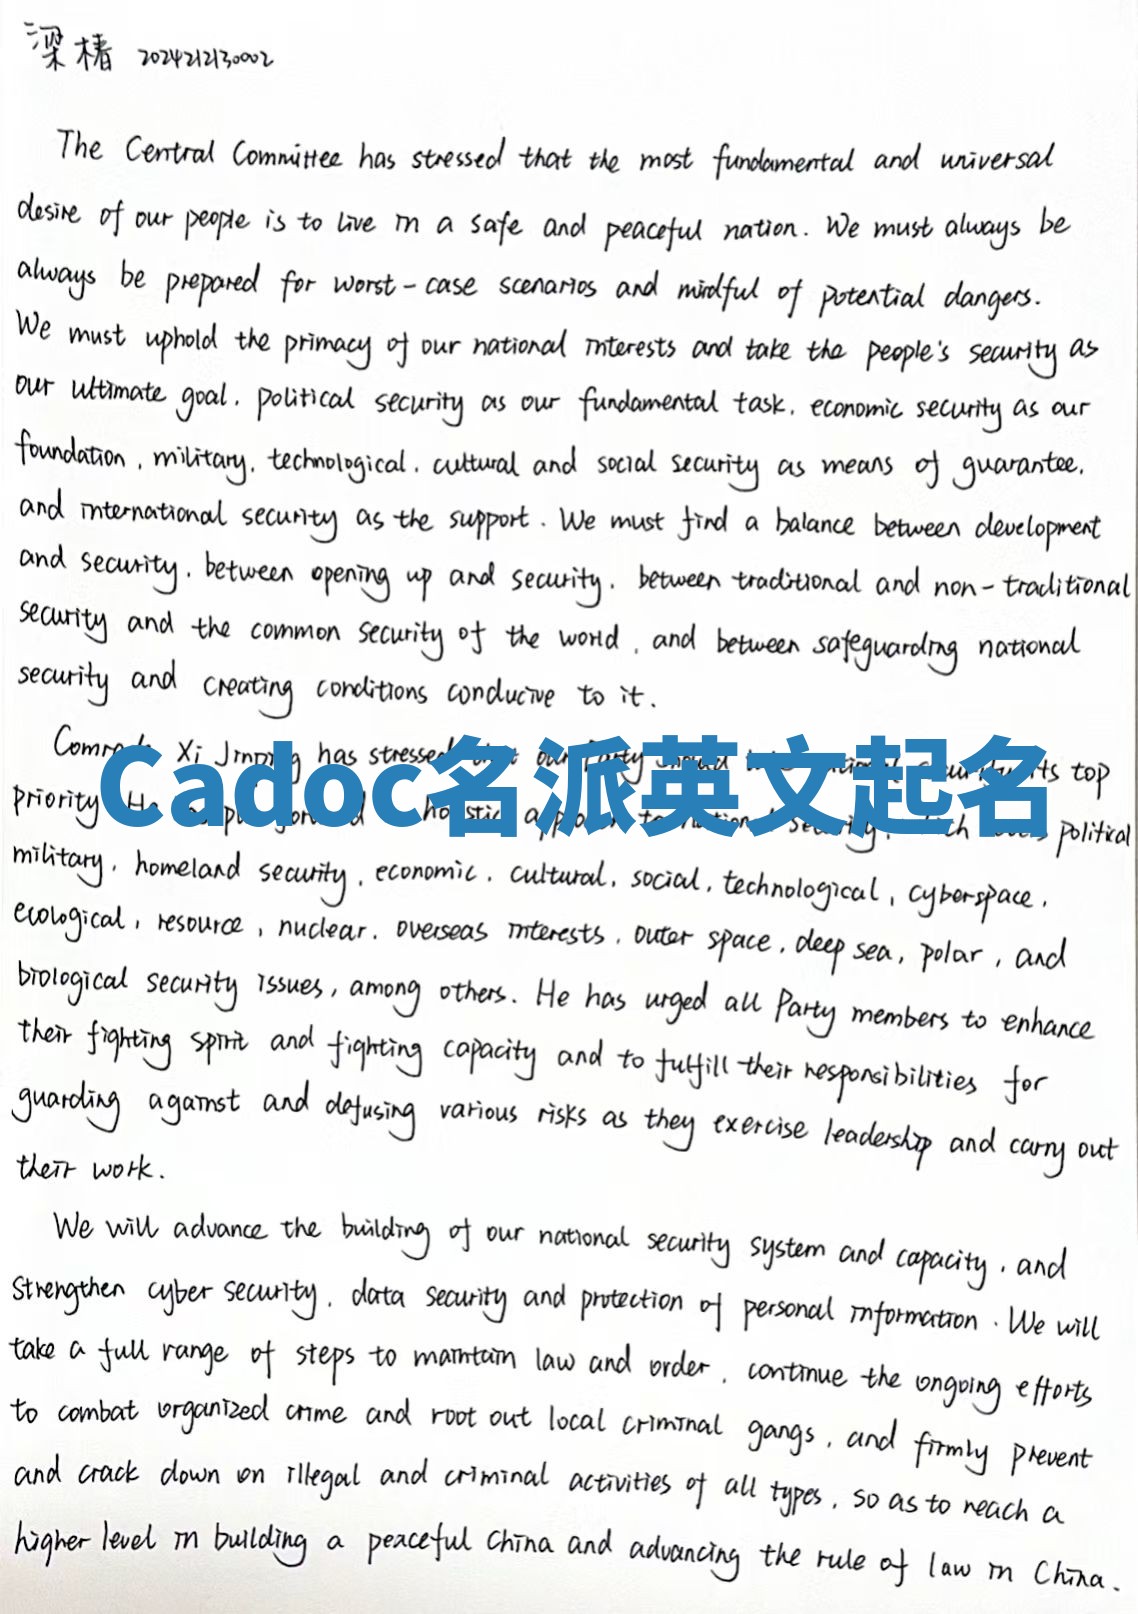 梁椿 2024212130002
The Central Committee has stressed that the most fundamental and universal
desire of our people is to live in a safe and peaceful nation. We must always be
always be prepared for worst-case scenarios and mindful of potential dangers.
We must uphold the primacy of our national interests and take the people's security as
our ultimate goal, political security as our fundamental task, economic security as our
foundation, military, technological, cultural and social security as means of guarantee,
and international security as the support. We must find a balance between development
and security, between opening up and security, between traditional and non-traditional
security and the common security of the world, and between safeguarding national
security and creating conditions conducive to it.
Comrade Xi Jinping has stressed that our Party should its top
Cadoc名派英文起名
priority. He holistic political
military, homeland security, economic, cultural, social, technological, cyberspace,
ecological, resource, nuclear, overseas interests, outer space, deep sea, polar, and
biological security issues, among others. He has urged all Party members to enhance
their fighting spirit and fighting capacity and to fulfill their responsibilities for
guarding against and defusing various risks as they exercise leadership and carry out
their work.
We will advance the building of our national security system and capacity, and
strengthen cyber security, data security and protection of personal information. We will
take a full range of steps to maintain law and order, continue the ongoing efforts
to combat organized crime and root out local criminal gangs, and firmly prevent
and crack down on illegal and criminal activities of all types, so as to reach a
higher level in building a peaceful China and advancing the rule of law in China.